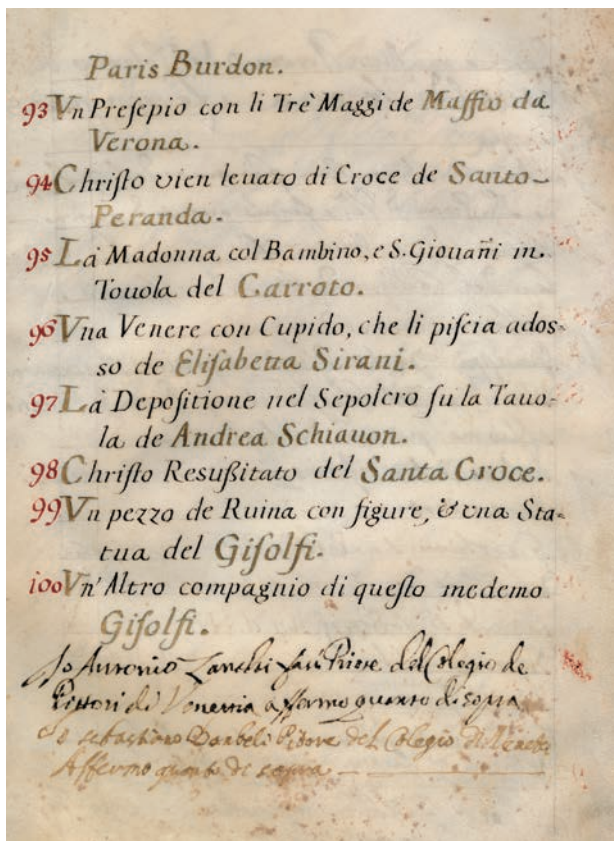 Paris Burdon.
93 Vn Presepio con li Trè Maggi de Maffio da
Verona.
94 Christo vien leuato di Croce de Santo
Peranda.
95 La Madonna col Bambino, e S. Giouañi in
Touola del Carroto.
96 Vna Venere con Cupido, che li piscia ados-
so de Elisabetta Sirani.
97 La Depositione nel Sepolcro su la Tauo-
la de Andrea Schiauon.
98 Christo Resußitato del Santa Croce.
99 Vn pezzo de Ruina con figure, & vna Sta-
tua del Gisolfi.
100 Vn' Altro compagnio di questo medemo
Gisolfi.
Io Antonio Zanchi Priore del Colegio de
Pittori di Venettia affermo quanto di sopra
Io sebastiano Bonbeli Pitore del Colegio di
Affermo quanto di sopra